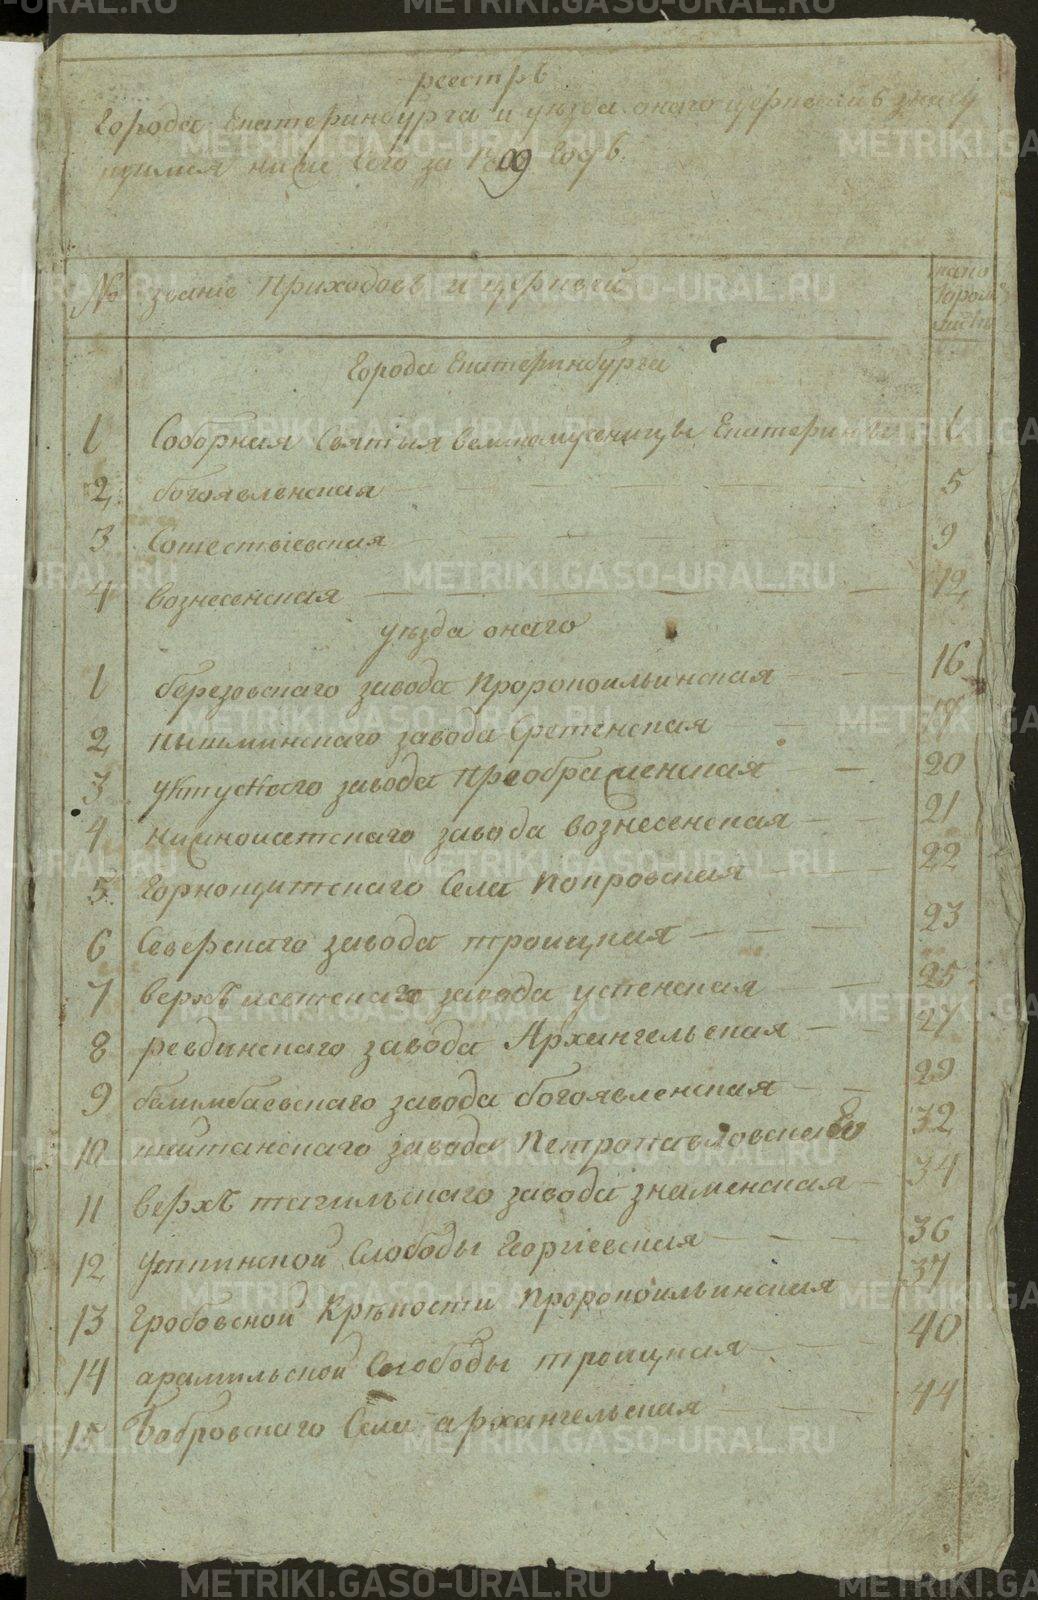 реестръ
Города Екатеринбурга и уѣзда онаго церквамъ значу
щимся ниже сего за 1809 годъ
№ званіе Приходовъ и церквей
на ко
торомъ
листѣ
Города Екатеринбурга
1 Соборная Святыя великомученицы Екатерины 1
2 богоявленская 5
3 Сошествіевская 9
4 вознесенская 12
уѣзда онаго
1 березовскаго завода Пророкоильинская 16
2 пышминскаго завода Сретенская
3 уктускаго завода преображенская 20
4 нижноисетскаго завода вознесенская 21
5 Горнощитскаго Села покровская 22
6 Северскаго завода троицкая 23
7 верхъ исетскаго завода успенская 25
8 ревдинскаго завода Архангельская 27
9 билимбаевскаго завода богоявленская 29
10 шайтанскаго завода Петропавловская 32
11 верхъ тагильскаго завода знаменская 34
12 уткинской Слободы Георгіевская 36
13 Гробовской Крѣпости пророкоильинская 37
14 арамильской Слободы троицкая 40
15 Бобровскаго Села архангельская 44
METRIKI.GASO-URAL.RU